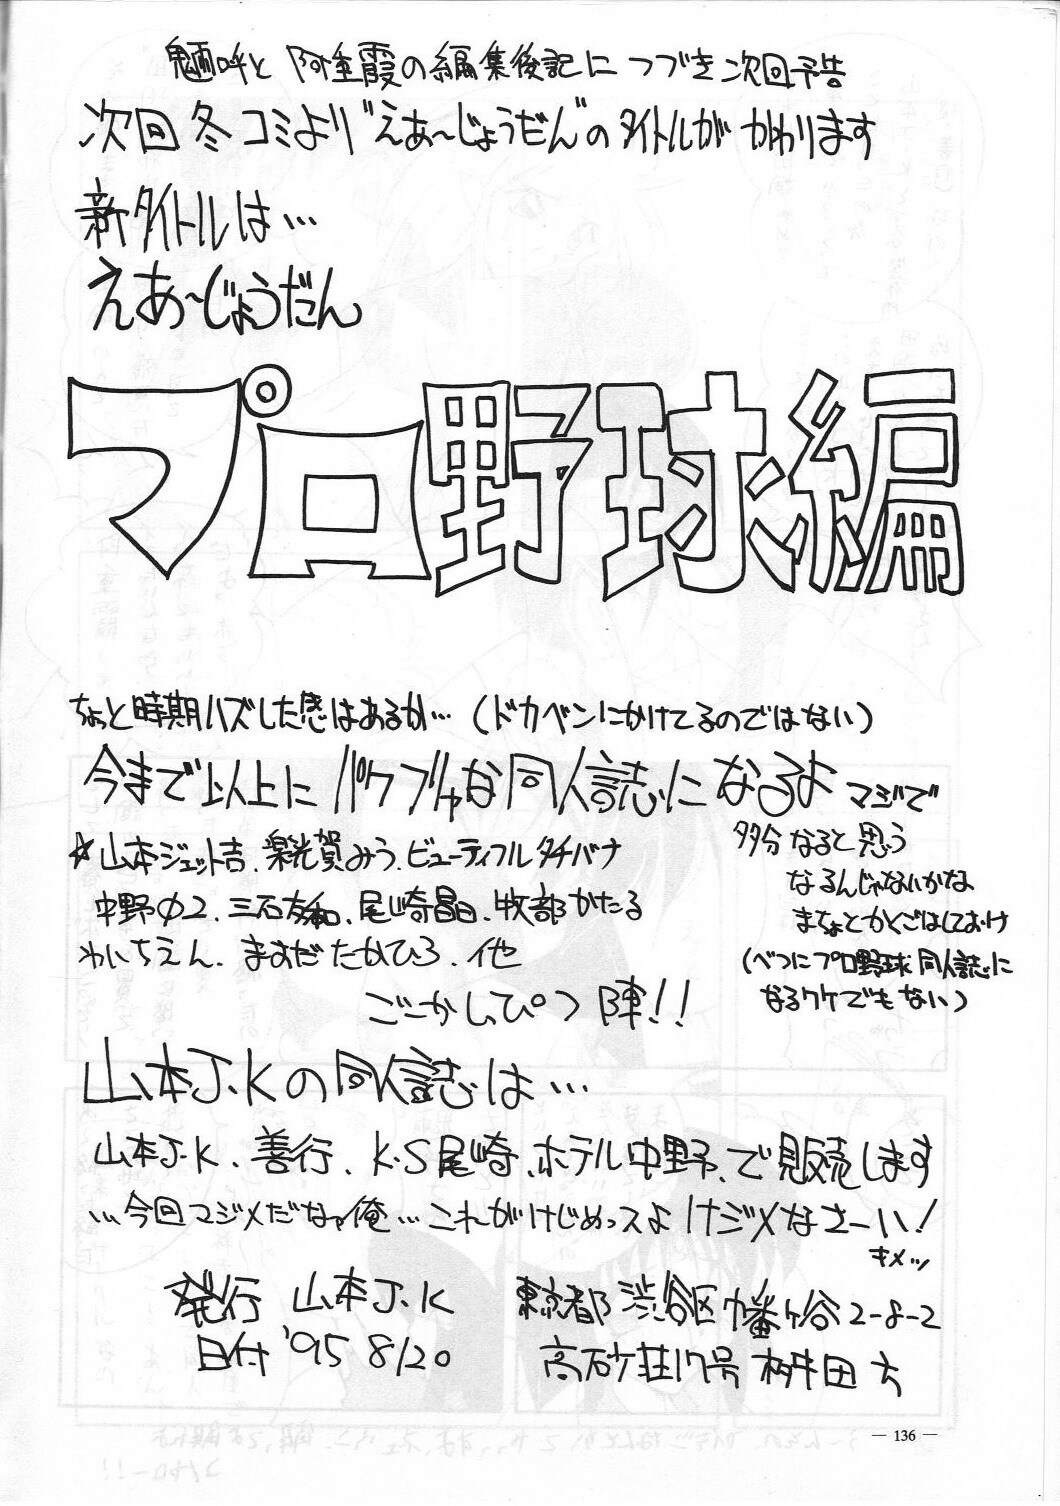 魎呼と 阿重霞の編集後記に つづき 次回予告
次回 冬コミより"えあ〜じょうだん"のタイトルが かわります
新タイトルは…
えあ〜じょうだん
プロ野球編
ちょっと時期ハズした感はあるが…（ドカベンにかけてるのではない）
今まで以上に パワフルな同人誌に なるよ マジで
多分 なると思う
なるんじゃないかな
まちょとかくごはしておけ
（べつにプロ野球 同人誌に
なるワケでもない）
☆山本ジェット吉、楽光賀みう、ビューティフルタチバナ
中野Φ2、三石友和、尾崎晶、牧部かたる
わいちえん、ますだたかひろ、他
ごーかしっぴつ陣!!
山本J.Kの同人誌は…
山本J.K、善行、K・S尾崎、ホテル中野、で販売します
…今回マジメだなァ俺…これがけじめっスよ けジメなさーい！
キメッ
発行 山本J.K
日付 '95 8/20
東京都 渋谷区 幡ヶ谷 2-8-2
高砂荘17号 桝田方
― 136 ―